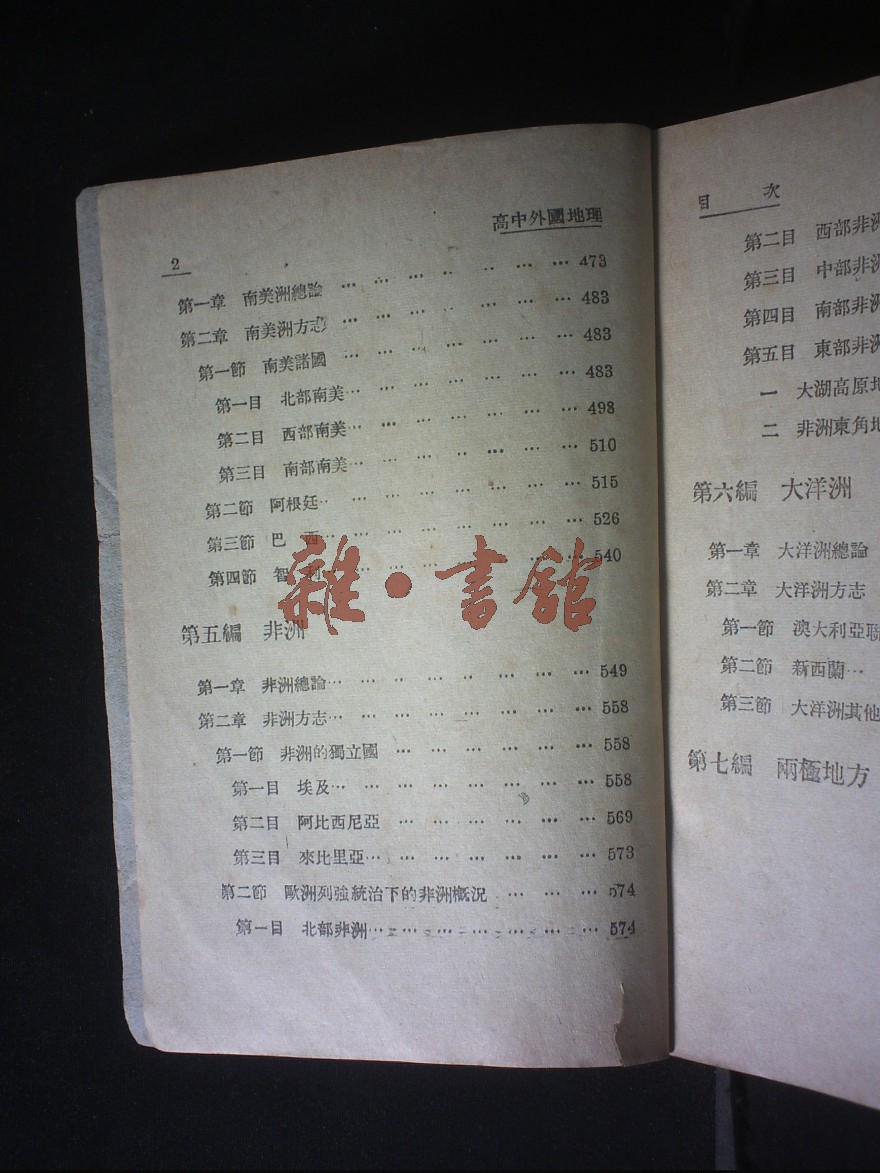 高中外國地理
2
第一章 南美洲總論 … … … … … … … 473
第二章 南美洲方志 … … … … … … … 483
第一節 南美諸國 … … … … … … … 483
第一目 北部南美… … … … … … … 483
第二目 西部南美… … … … … … … 498
第三目 南部南美… … … … … … … 510
第二節 阿根廷… … … … … … … … 515
第三節 巴 西… … … … … … … … 526
第四節 智 利… … … … … … … 540
雜·書館
第五編 非洲
第一章 非洲總論… … … … … … … … 549
第二章 非洲方志… … … … … … … … 558
第一節 非洲的獨立國 … … … … … … 558
第一目 埃及… … … … … … … … 558
第二目 阿比西尼亞 … … … … … … 569
第三目 來比里亞… … … … … … … 573
第二節 歐洲列強統治下的非洲概況 … … … 574
第一目 北部非洲… … … … … … … 574
目 次
第二目 西部非
第三目 中部非
第四目 南部非
第五目 東部非
一 大湖高原
二 非洲東角
第六編 大洋洲
第一章 大洋洲總論
第二章 大洋洲方志
第一節 澳大利亞
第二節 新西蘭…
第三節 大洋洲其他
第七編 兩極地方